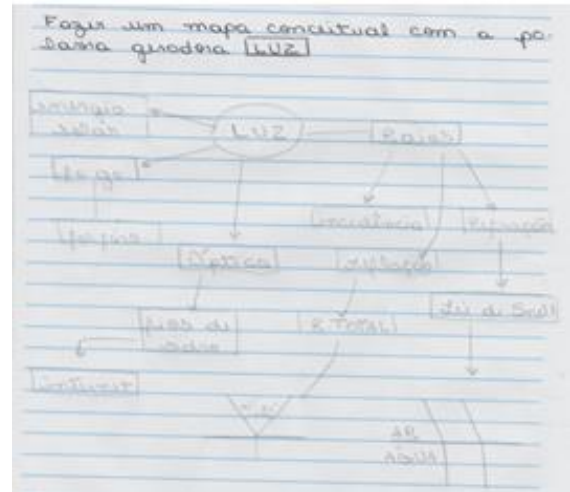 Fazer um mapa conceitual com a pa-
lavra geradora LUZ
energia
solar
LUZ
Raios
fogo
incidência
refração
Óptica
reflexão
Lei de Snell
fibra de
vidro
R. TOTAL
internet
AR
ÁGUA